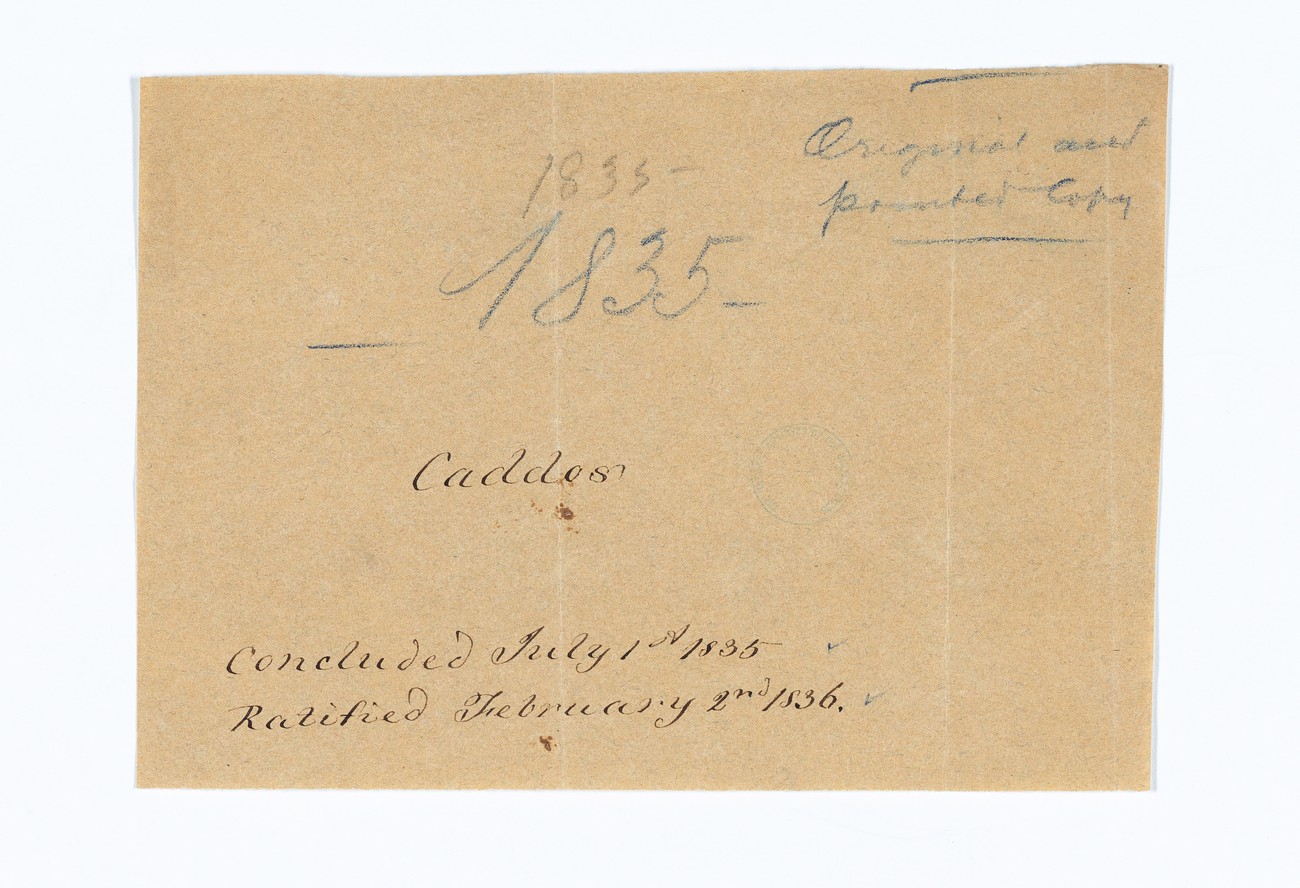 Original and
printed Copy
1835-
1835-
Caddos
Concluded July 1st 1835
Ratified February 2nd 1836.